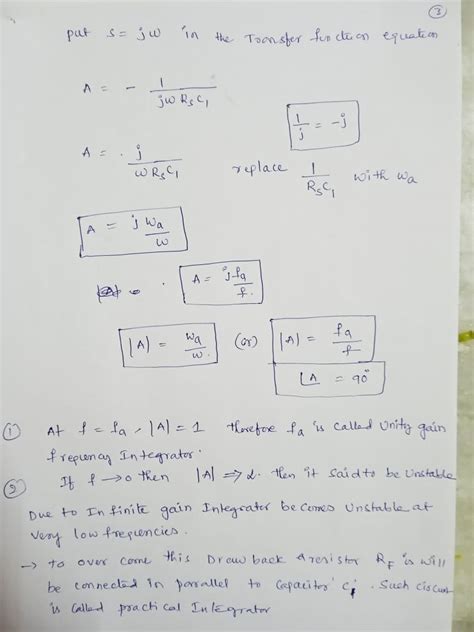 3
put s = jω in the Transfer function equation
A = - 1/(jω RsC1)
1/j = -j
A = j/(ω RsC1) replace 1/(RsC1) with ωa
A = j ωa/ω
A = j fa/f.
|A| = ωa/ω. (or) |A| = fa/f
∠A = 90°
① At f = fa, |A| = 1 therefore fa is called Unity gain
frequency Integrator.
② If f → 0 then |A| ⇒ ∞. then it said to be Unstable
Due to Infinite gain Integrator becomes Unstable at
very low frequencies.
→ to over come this Draw back a resistor RF is will
be connected in parallel to capacitor Cj. Such circuit
is called practical Integrator